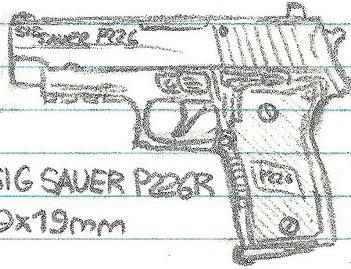 SIG
SAUER P226
P226
SIG SAUER P226R
9x19mm